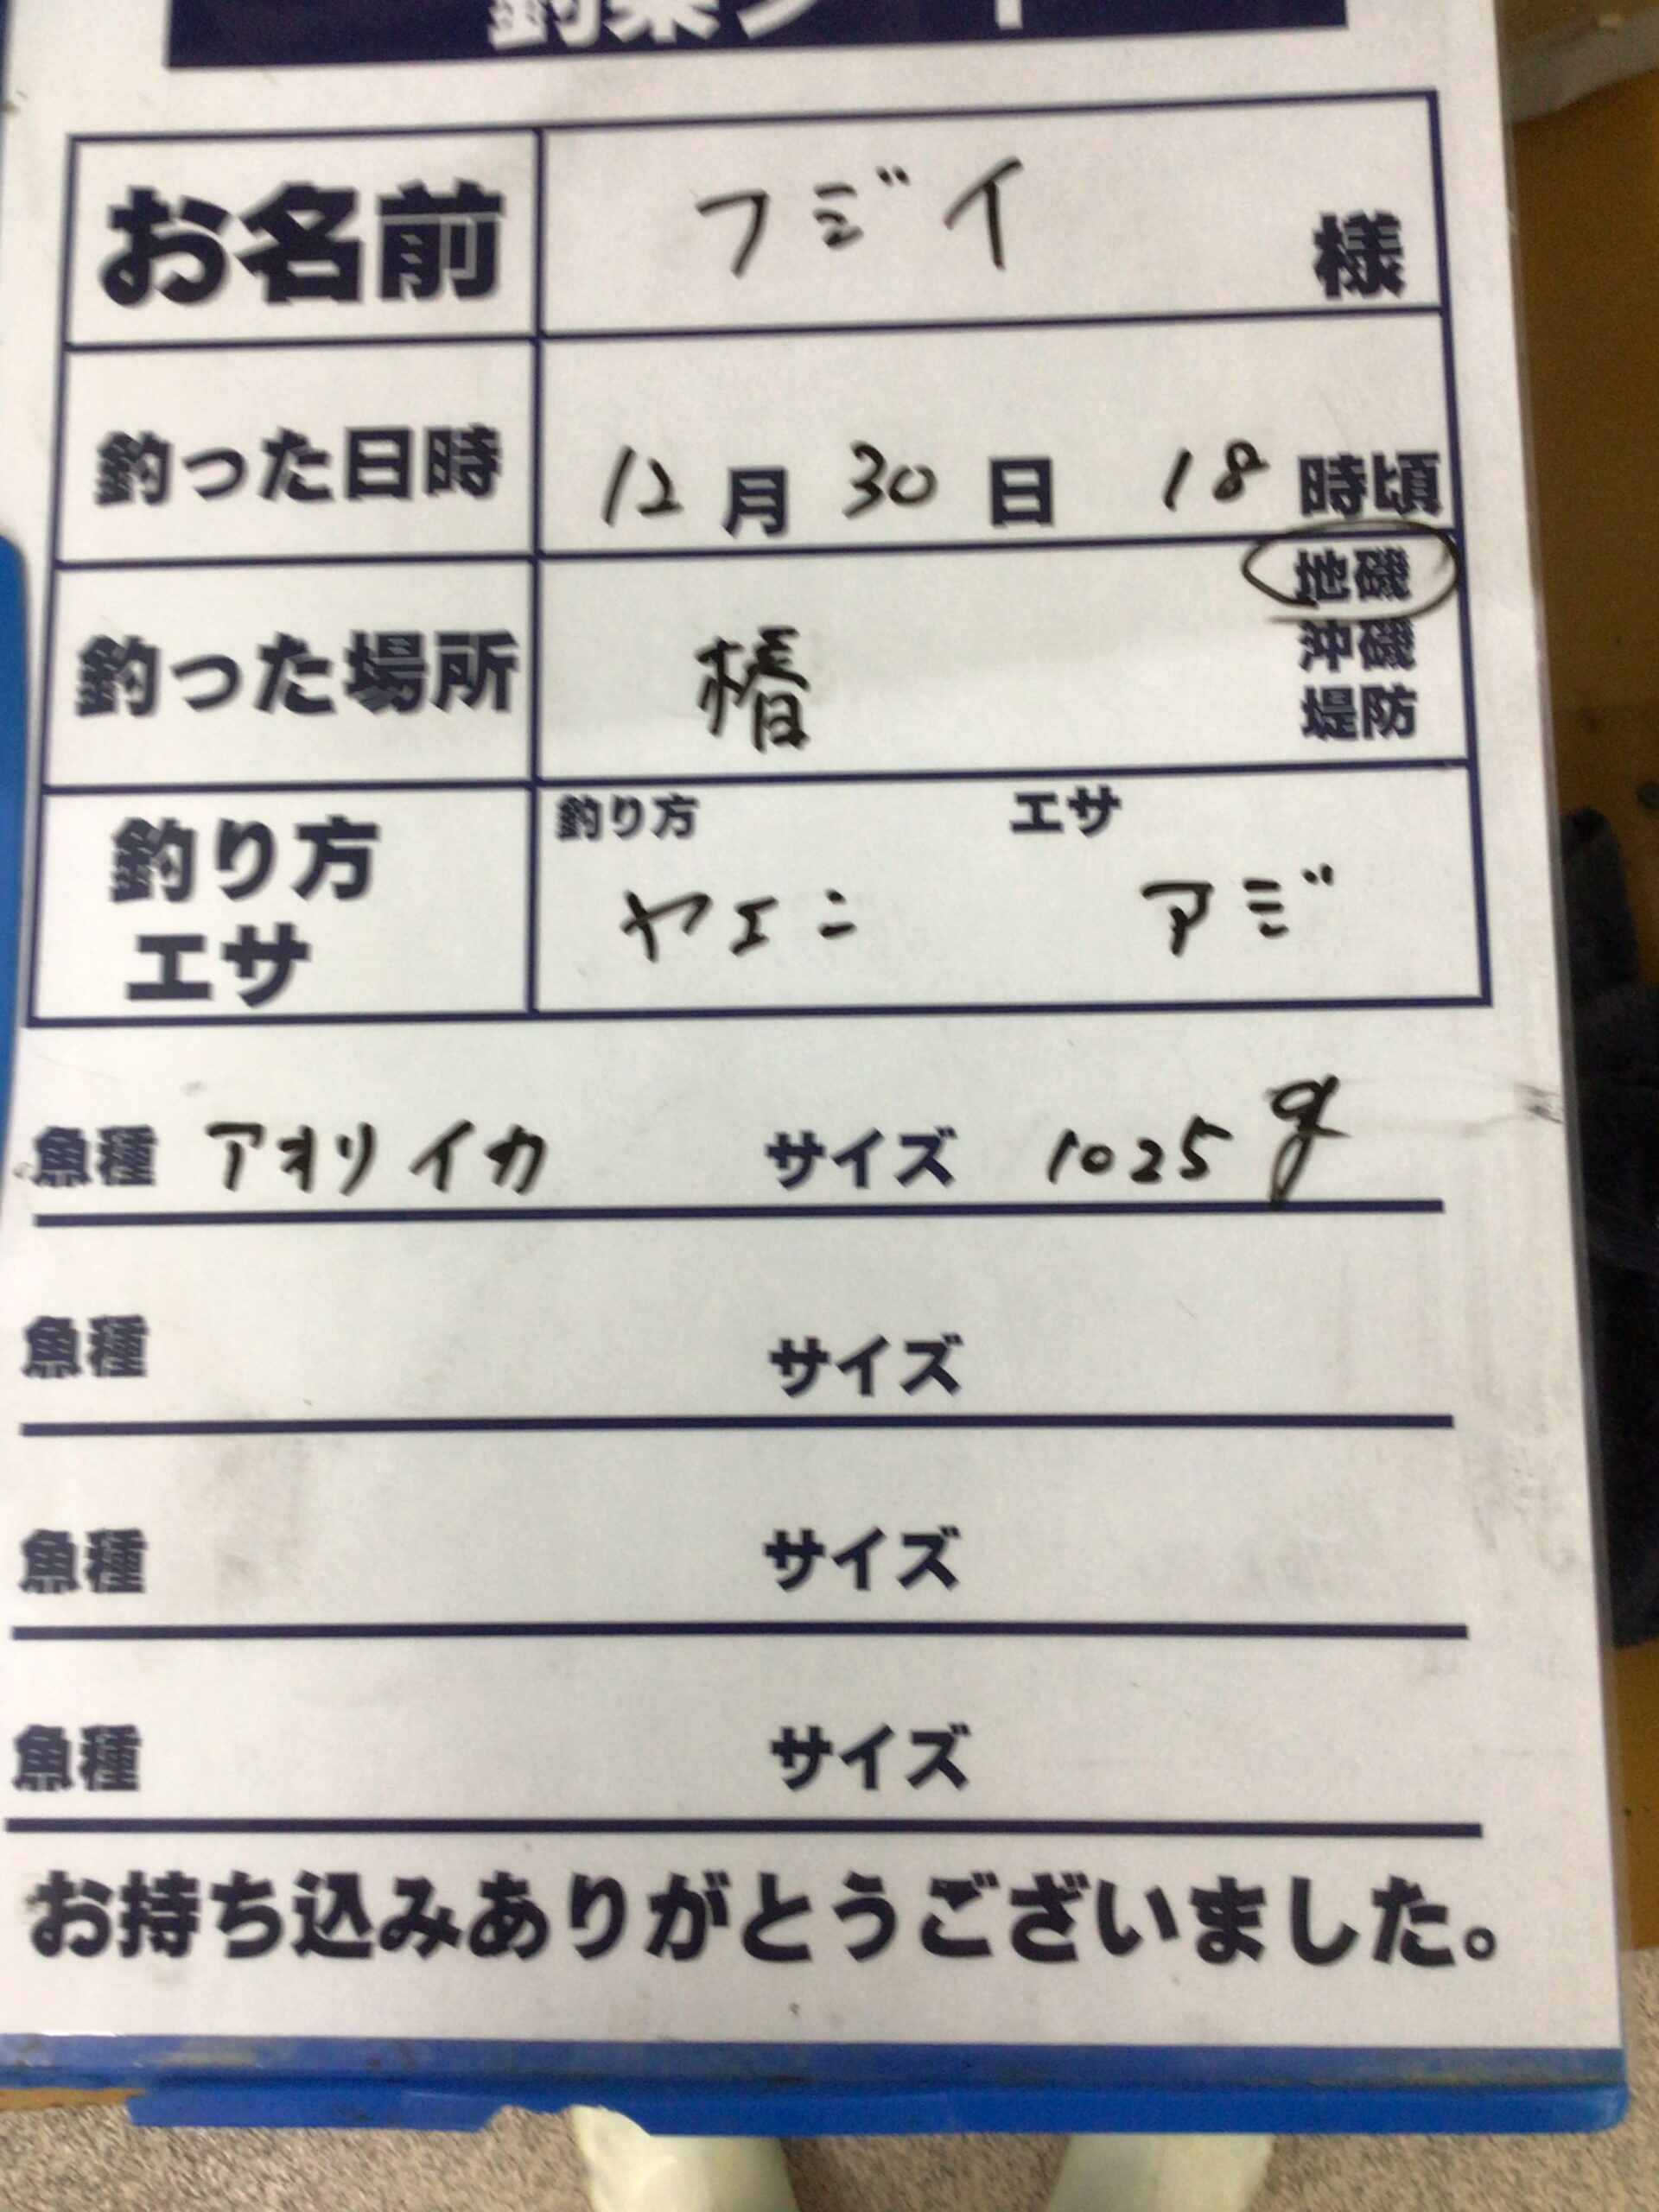 釣果シート
お名前 フジイ 様
釣った日時 12月30日 18時頃
釣った場所 椿 地磯
沖磯
堤防
釣り方 エサ
釣り方
エサ
ヤエン アジ
魚種 アオリイカ サイズ 1025g
魚種 サイズ
魚種 サイズ
魚種 サイズ
お持ち込みありがとうございました。